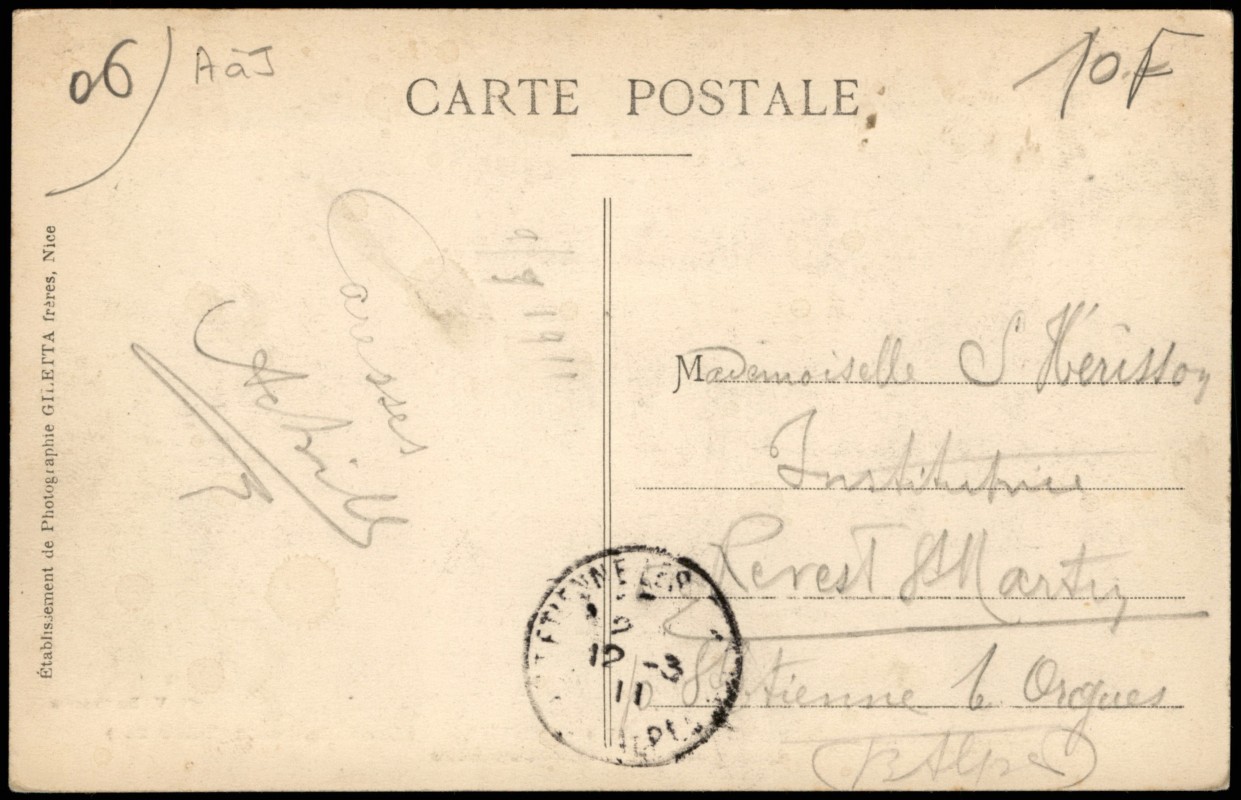 06) A à J
10 F
CARTE POSTALE
Établissement de Photographie GILETTA frères, Nice
Caresses
Achille
Mademoiselle S Hérisson
Institutrice
Revest St Martin
St Etienne les Orgues
(B Alpes)
ST ETIENNE LES
10 -3
11
ALPES